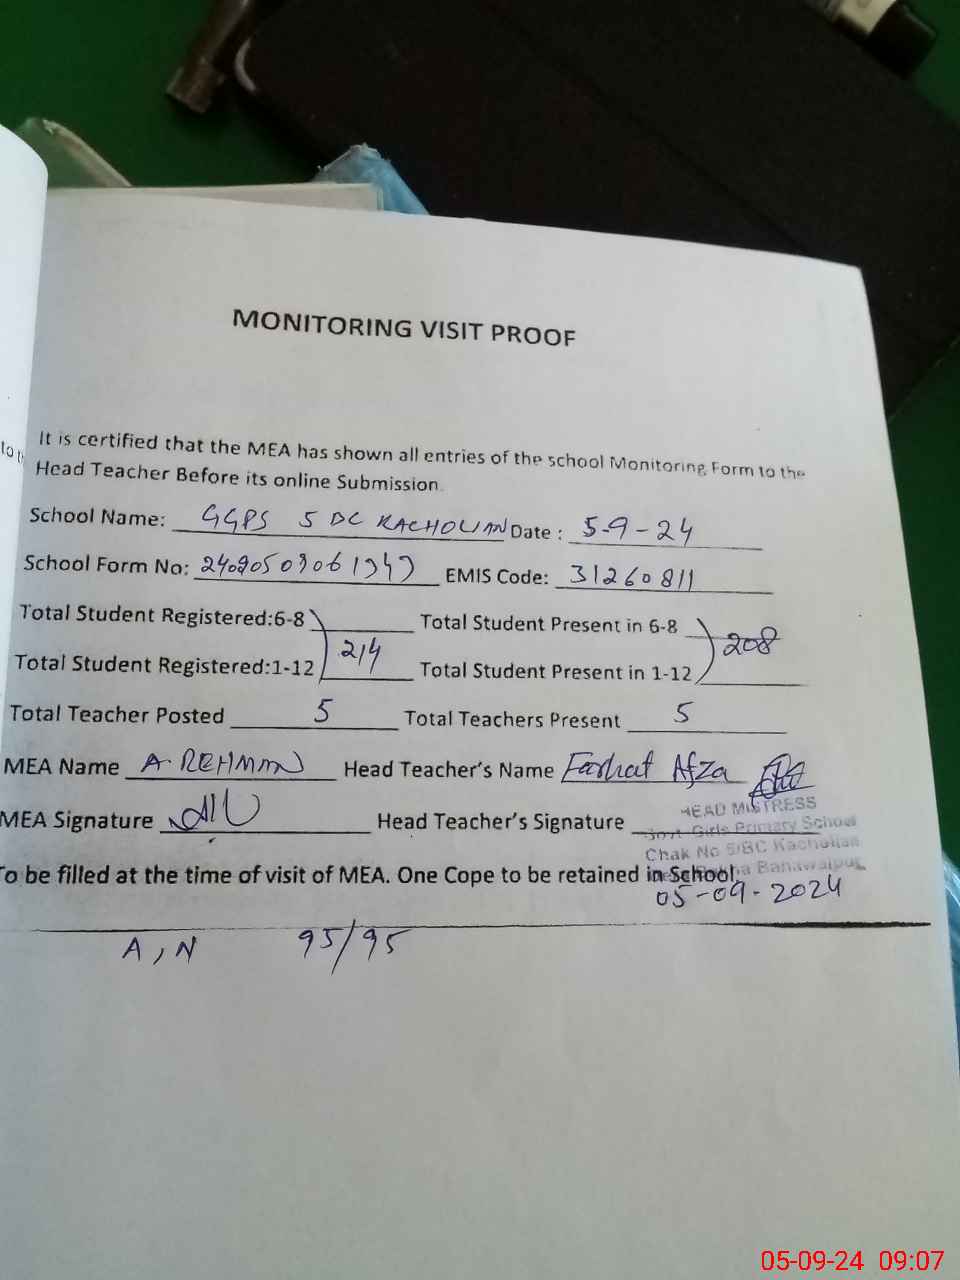 MONITORING VISIT PROOF
to th
It is certified that the MEA has shown all entries of the school Monitoring Form to the
Head Teacher Before its online Submission.
School Name: GGPS 5 BC KACHOLIAN Date : 5-9-24
School Form No: EMIS Code: 31260811
Total Student Registered:6-8 Total Student Present in 6-8
214 208
Total Student Registered:1-12 Total Student Present in 1-12
Total Teacher Posted 5 Total Teachers Present 5
MEA Name A. REHMAN Head Teacher's Name Farhat Afza
MEA Signature Head Teacher's Signature
HEAD MISTRESS
Govt. Girls Primary School
Chak No 5/BC Kacholian
Bahawalpur
To be filled at the time of visit of MEA. One Cope to be retained in School.
05-09-2024
A, N 95/95
05-09-24 09:07